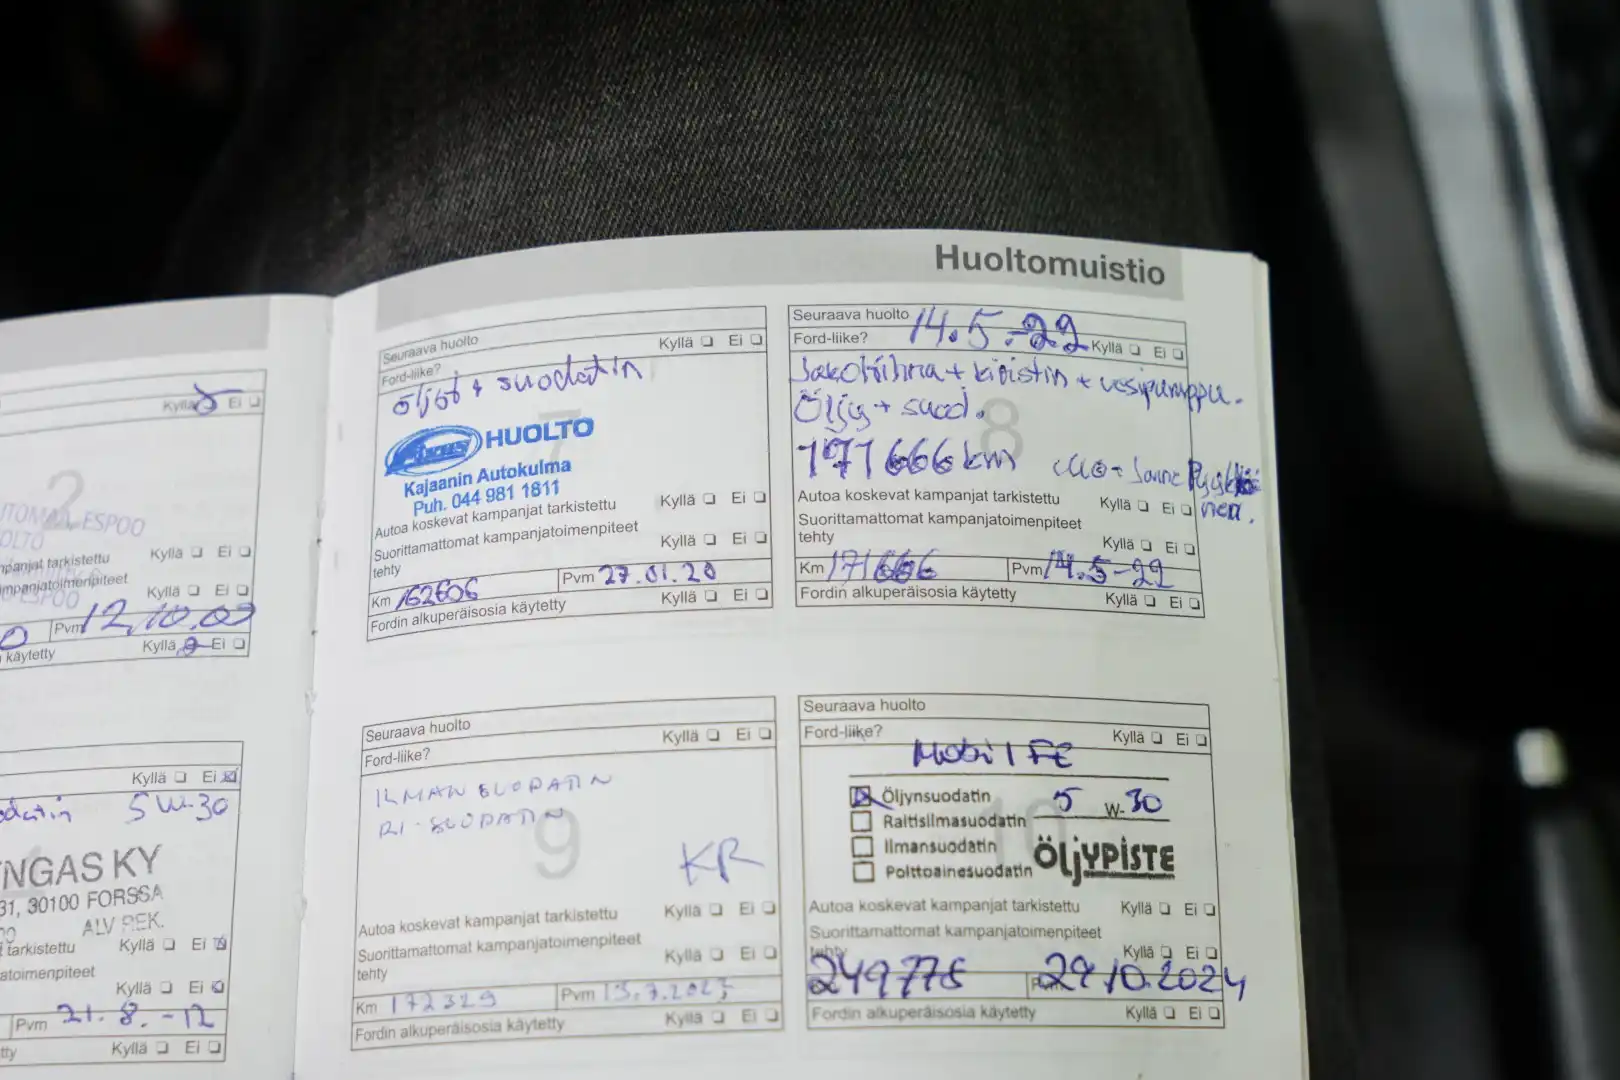 Huoltomuistio
Kyllä Ei
2
ESPOO
tarkistettu Kyllä Ei
Kyllä Ei
Pvm 12.10.09
käytetty Kyllä Ei
Kyllä Ei
5W-30
NGAS KY
31, 30100 FORSSA
ALV REK.
tarkistettu Kyllä Ei
atoimenpiteet
Kyllä Ei
Pvm 21.8.-12
Kyllä Ei
Seuraava huolto
Ford-liike? Kyllä Ei
öljyt + suodatin
7
HUOLTO
Kajaanin Autokulma
Puh. 044 981 1811
Autoa koskevat kampanjat tarkistettu Kyllä Ei
Suorittamattomat kampanjatoimenpiteet
tehty Kyllä Ei
Km 162606 Pvm 27.01.20
Fordin alkuperäisosia käytetty Kyllä Ei
Seuraava huolto 14.5.-22
Ford-liike? Kyllä Ei
Jakohihna + kiristin + vesipumppu.
Öljy + suod.
8
171666 km
Autoa koskevat kampanjat tarkistettu Kyllä Ei
Suorittamattomat kampanjatoimenpiteet
tehty Kyllä Ei
Km 171666 Pvm 14.5-22
Fordin alkuperäisosia käytetty Kyllä Ei
Seuraava huolto
Ford-liike? Kyllä Ei
ILMAN SUODATIN
RI-SUODATIN
9
KR
Autoa koskevat kampanjat tarkistettu Kyllä Ei
Suorittamattomat kampanjatoimenpiteet
tehty Kyllä Ei
Km 172329 Pvm 13.7.2023
Fordin alkuperäisosia käytetty Kyllä Ei
Seuraava huolto
Ford-liike? Kyllä Ei
Mobil FE
10
Öljynsuodatin 5 W-30
Raitisilmasuodatin
Ilmansuodatin ÖljYPiSTE
Polttoainesuodatin
Autoa koskevat kampanjat tarkistettu Kyllä Ei
Suorittamattomat kampanjatoimenpiteet
tehty Kyllä Ei
249778 Pvm 29.10.2024
Fordin alkuperäisosia käytetty Kyllä Ei